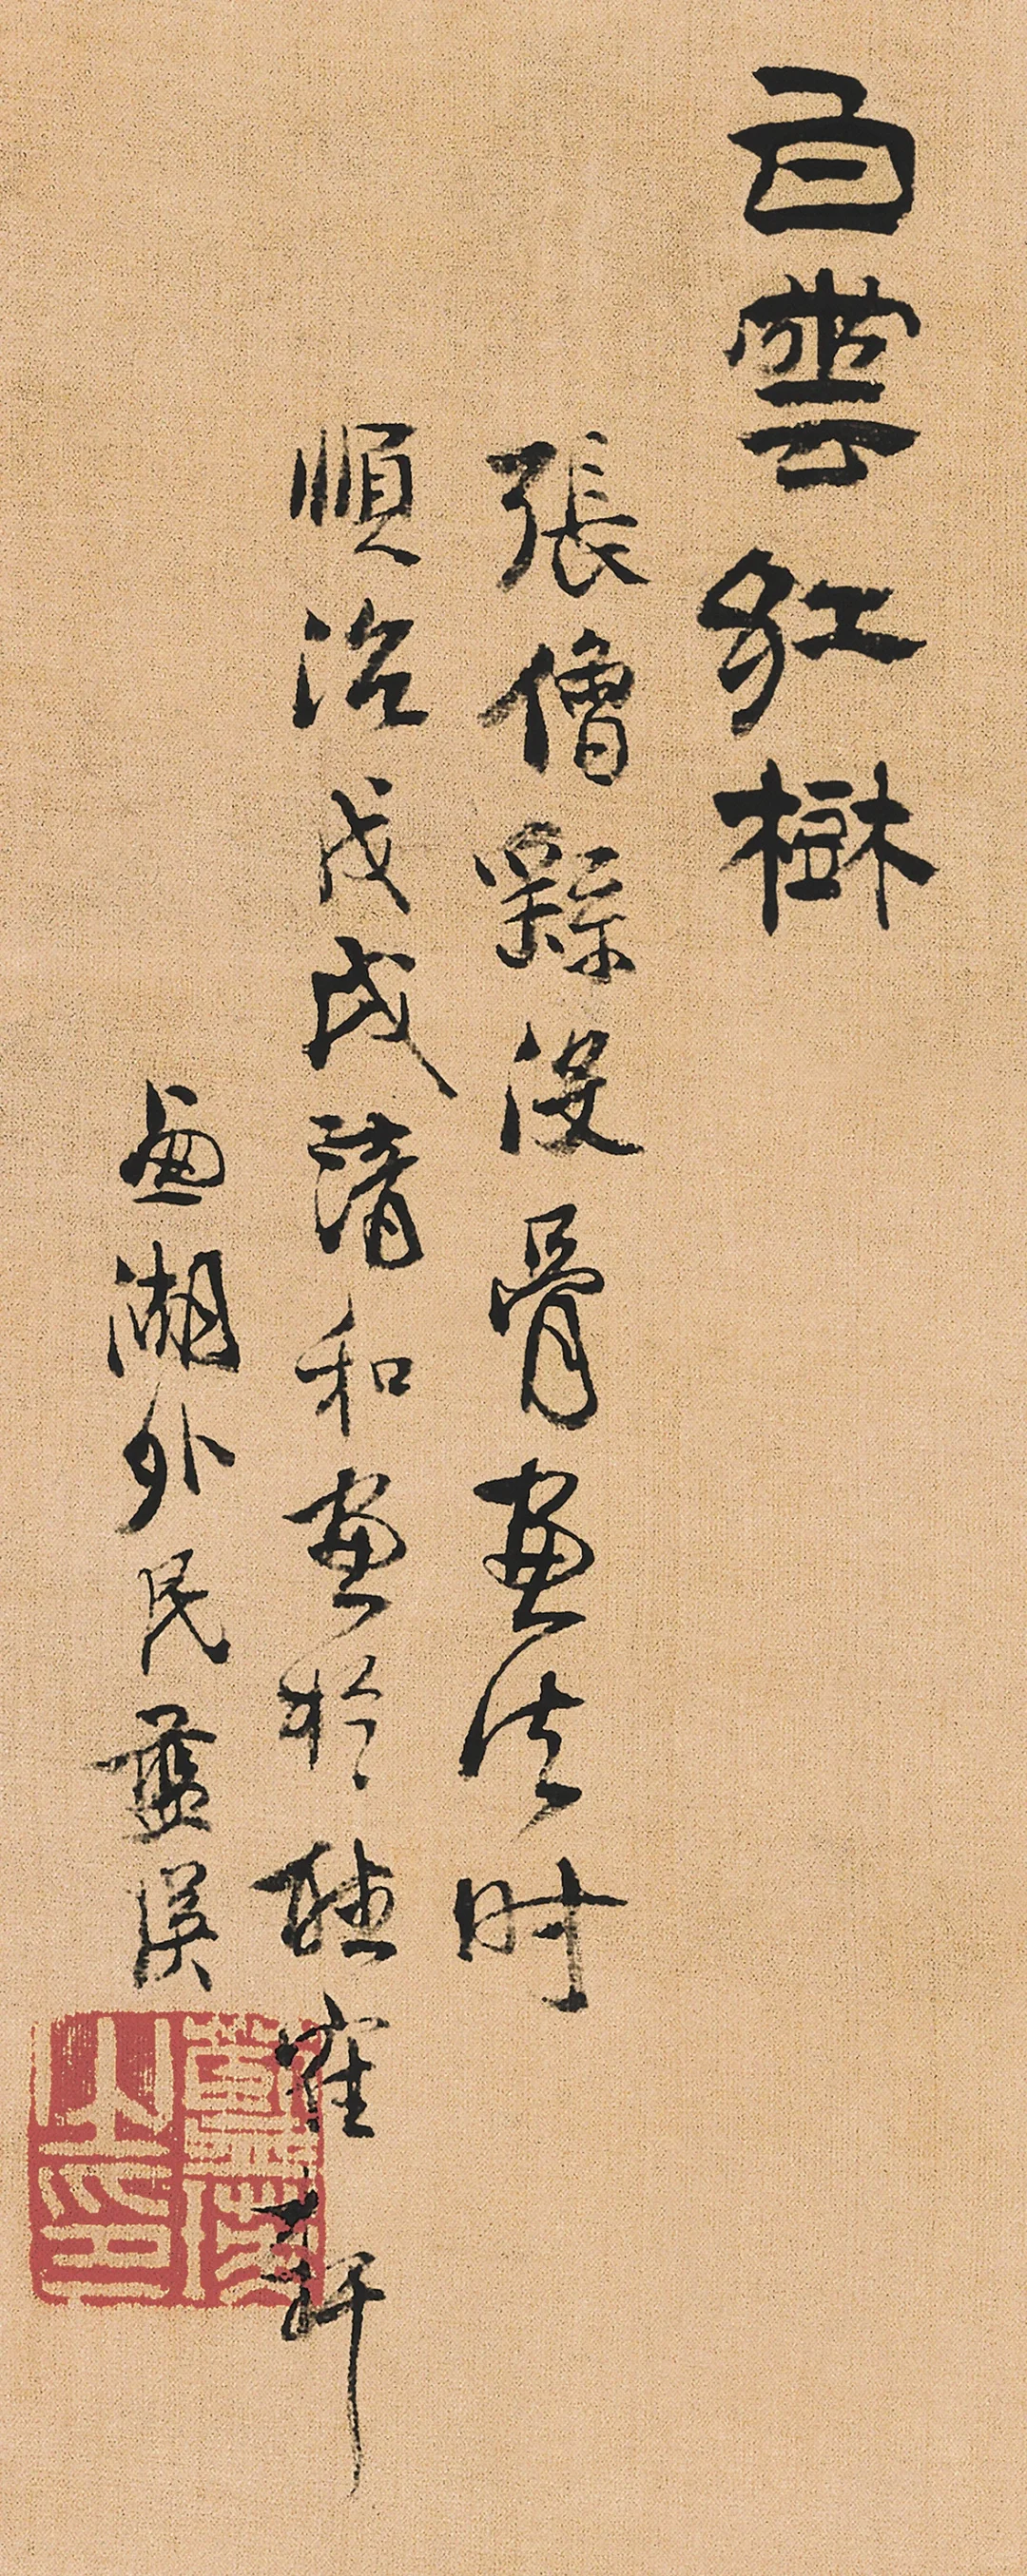 白雲紅樹
張僧繇沒骨畫法時
順治戊戌清和畫於聽隺軒
西湖外民藍瑛